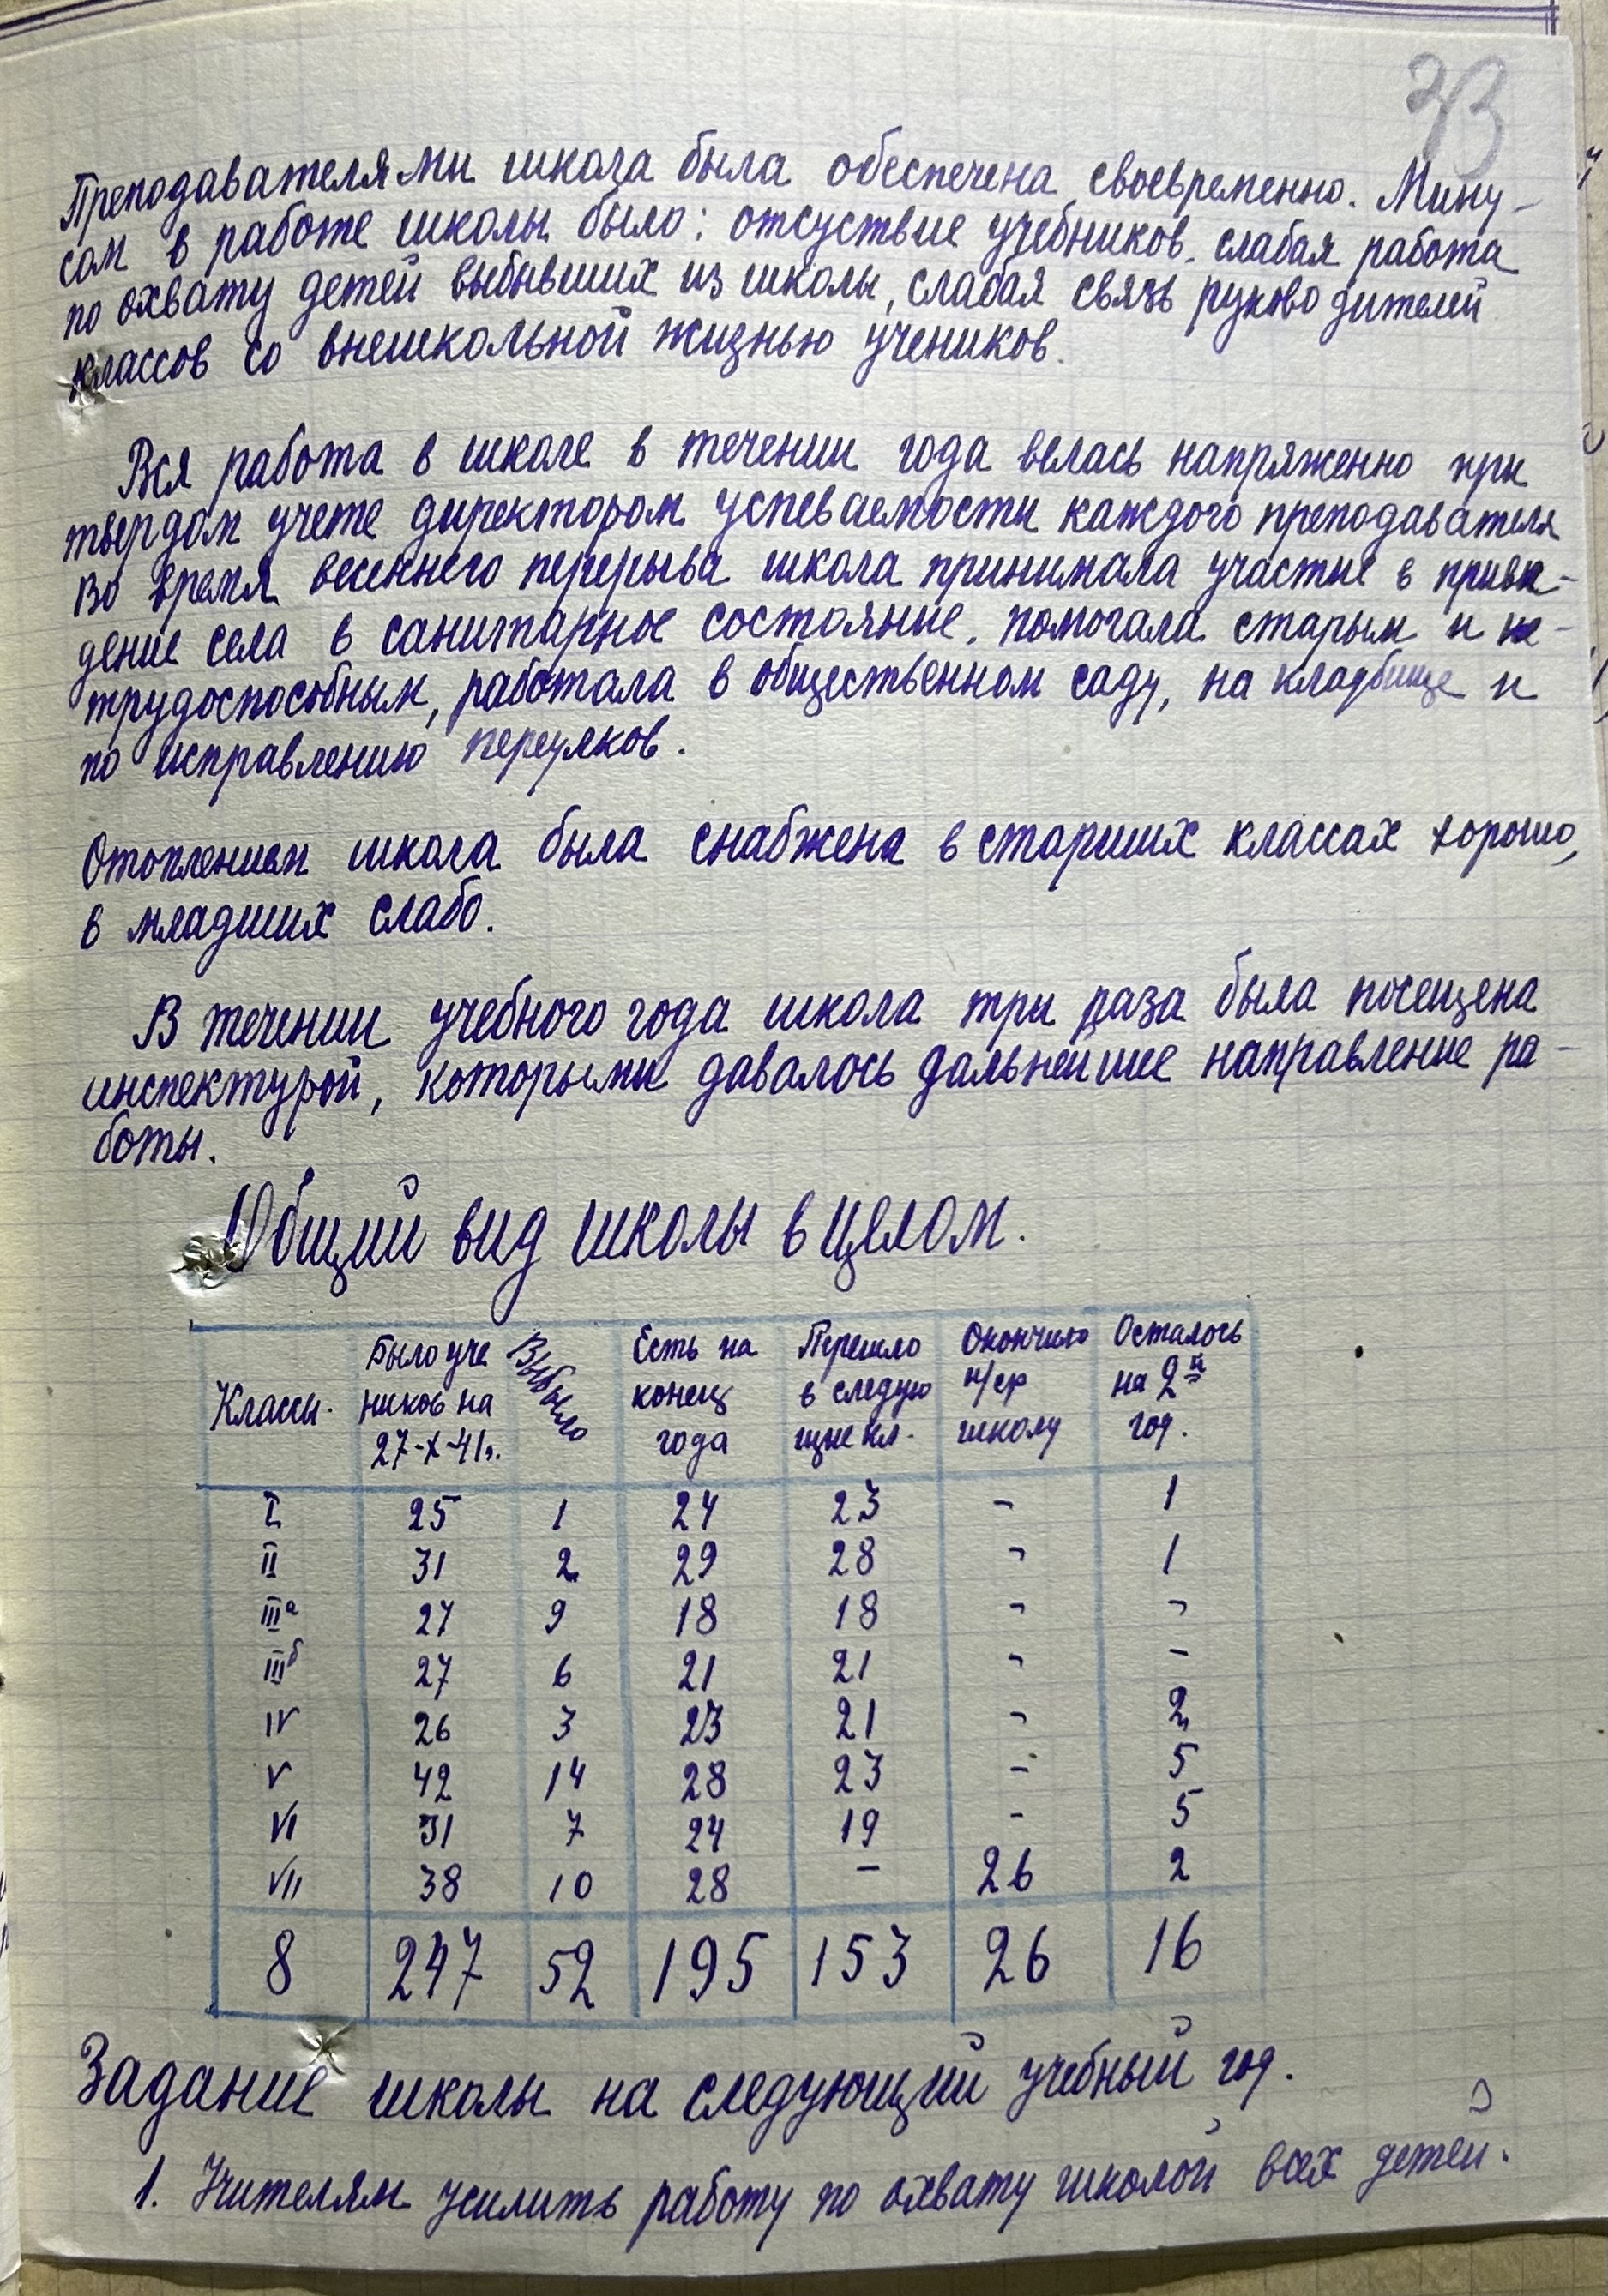 33
Преподавателями школа была обеспечена своевременно. Мину-
сом в работе школы было: отсуствие учебников, слабая работа
по охвату детей выбывших из школы, слабая связь руководителей
классов со внешкольной жизнью учеников.
Вся работа в школе в течении года велась напряженно при
твердом учете директором успеваемости каждого преподавателя
Во время весеннего перерыва школа принимала участие в приве-
дение села в санитарное состояние, помогала старым и не-
трудоспособным, работала в общественном саду, на кладбище и
по исправлению переулков.
Отоплением школа была снабжена в старших классах хорошо,
в младших слабо.
В течении учебного года школа три раза была посещена
инспектурой, которыми давалось дальнейшее направление ра-
боты.
Общий вид школы в целом.
Классы. Было уче ников на 27-X-41г. Выбыло Есть на конец года Перешло в следую щие кл. Окончило н/ср школу Осталось на 2й год.
I 25 1 24 23 - 1
II 31 2 29 28 - 1
IIIа 27 9 18 18 - -
IIIб 27 6 21 21 - -
IV 26 3 23 21 - 2
V 42 14 28 23 - 5
VI 31 7 24 19 - 5
VII 38 10 28 - 26 2
8 247 52 195 153 26 16
Задание школы на следующий учебный год.
1. Учителям усилить работу по охвату школой всех детей.